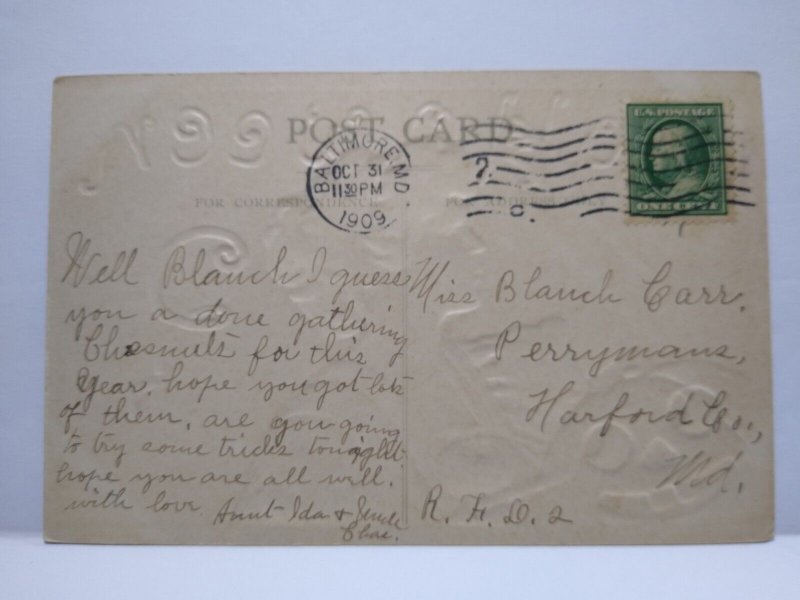 POST CARD
BALTIMORE, MD.
OCT 31
11 30 PM
1909
2.
C.
U.S. POSTAGE
ONE CENT
FOR CORRESPONDENCE
FOR ADDRESS ONLY
Well Blanch I guess
you a done gathering
Chesnuts for this
Year, hope you got lots
of them, are you going
to try some tricks tonight
hope you are all well.
with love Aunt Ida & Uncle
Chas.
Miss Blanch Carr.
Perrymans,
Harford Co.,
Md.
R. F. D. 2